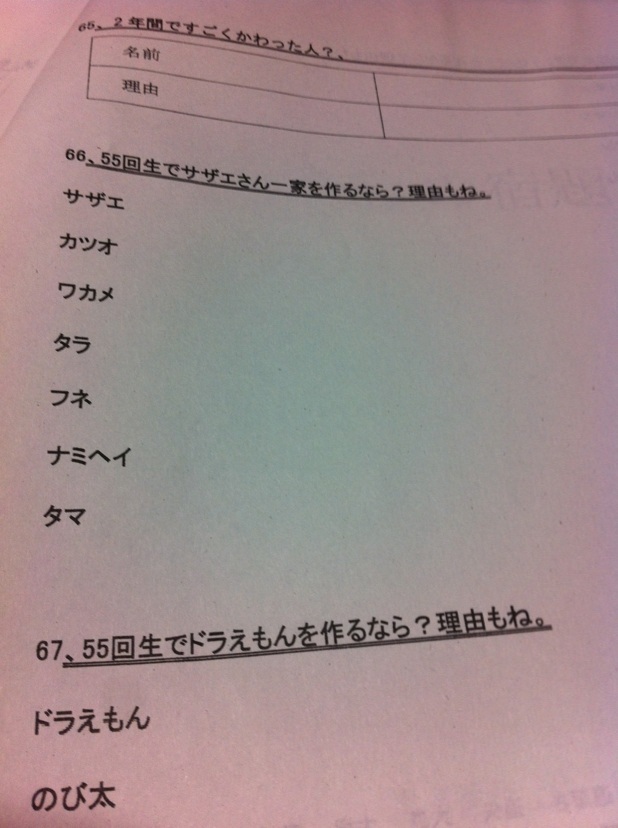 65、２年間ですごくかわった人？、
名前
理由
66、55回生でサザエさん一家を作るなら？理由もね。
サザエ
カツオ
ワカメ
タラ
フネ
ナミヘイ
タマ
67、55回生でドラえもんを作るなら？理由もね。
ドラえもん
のび太